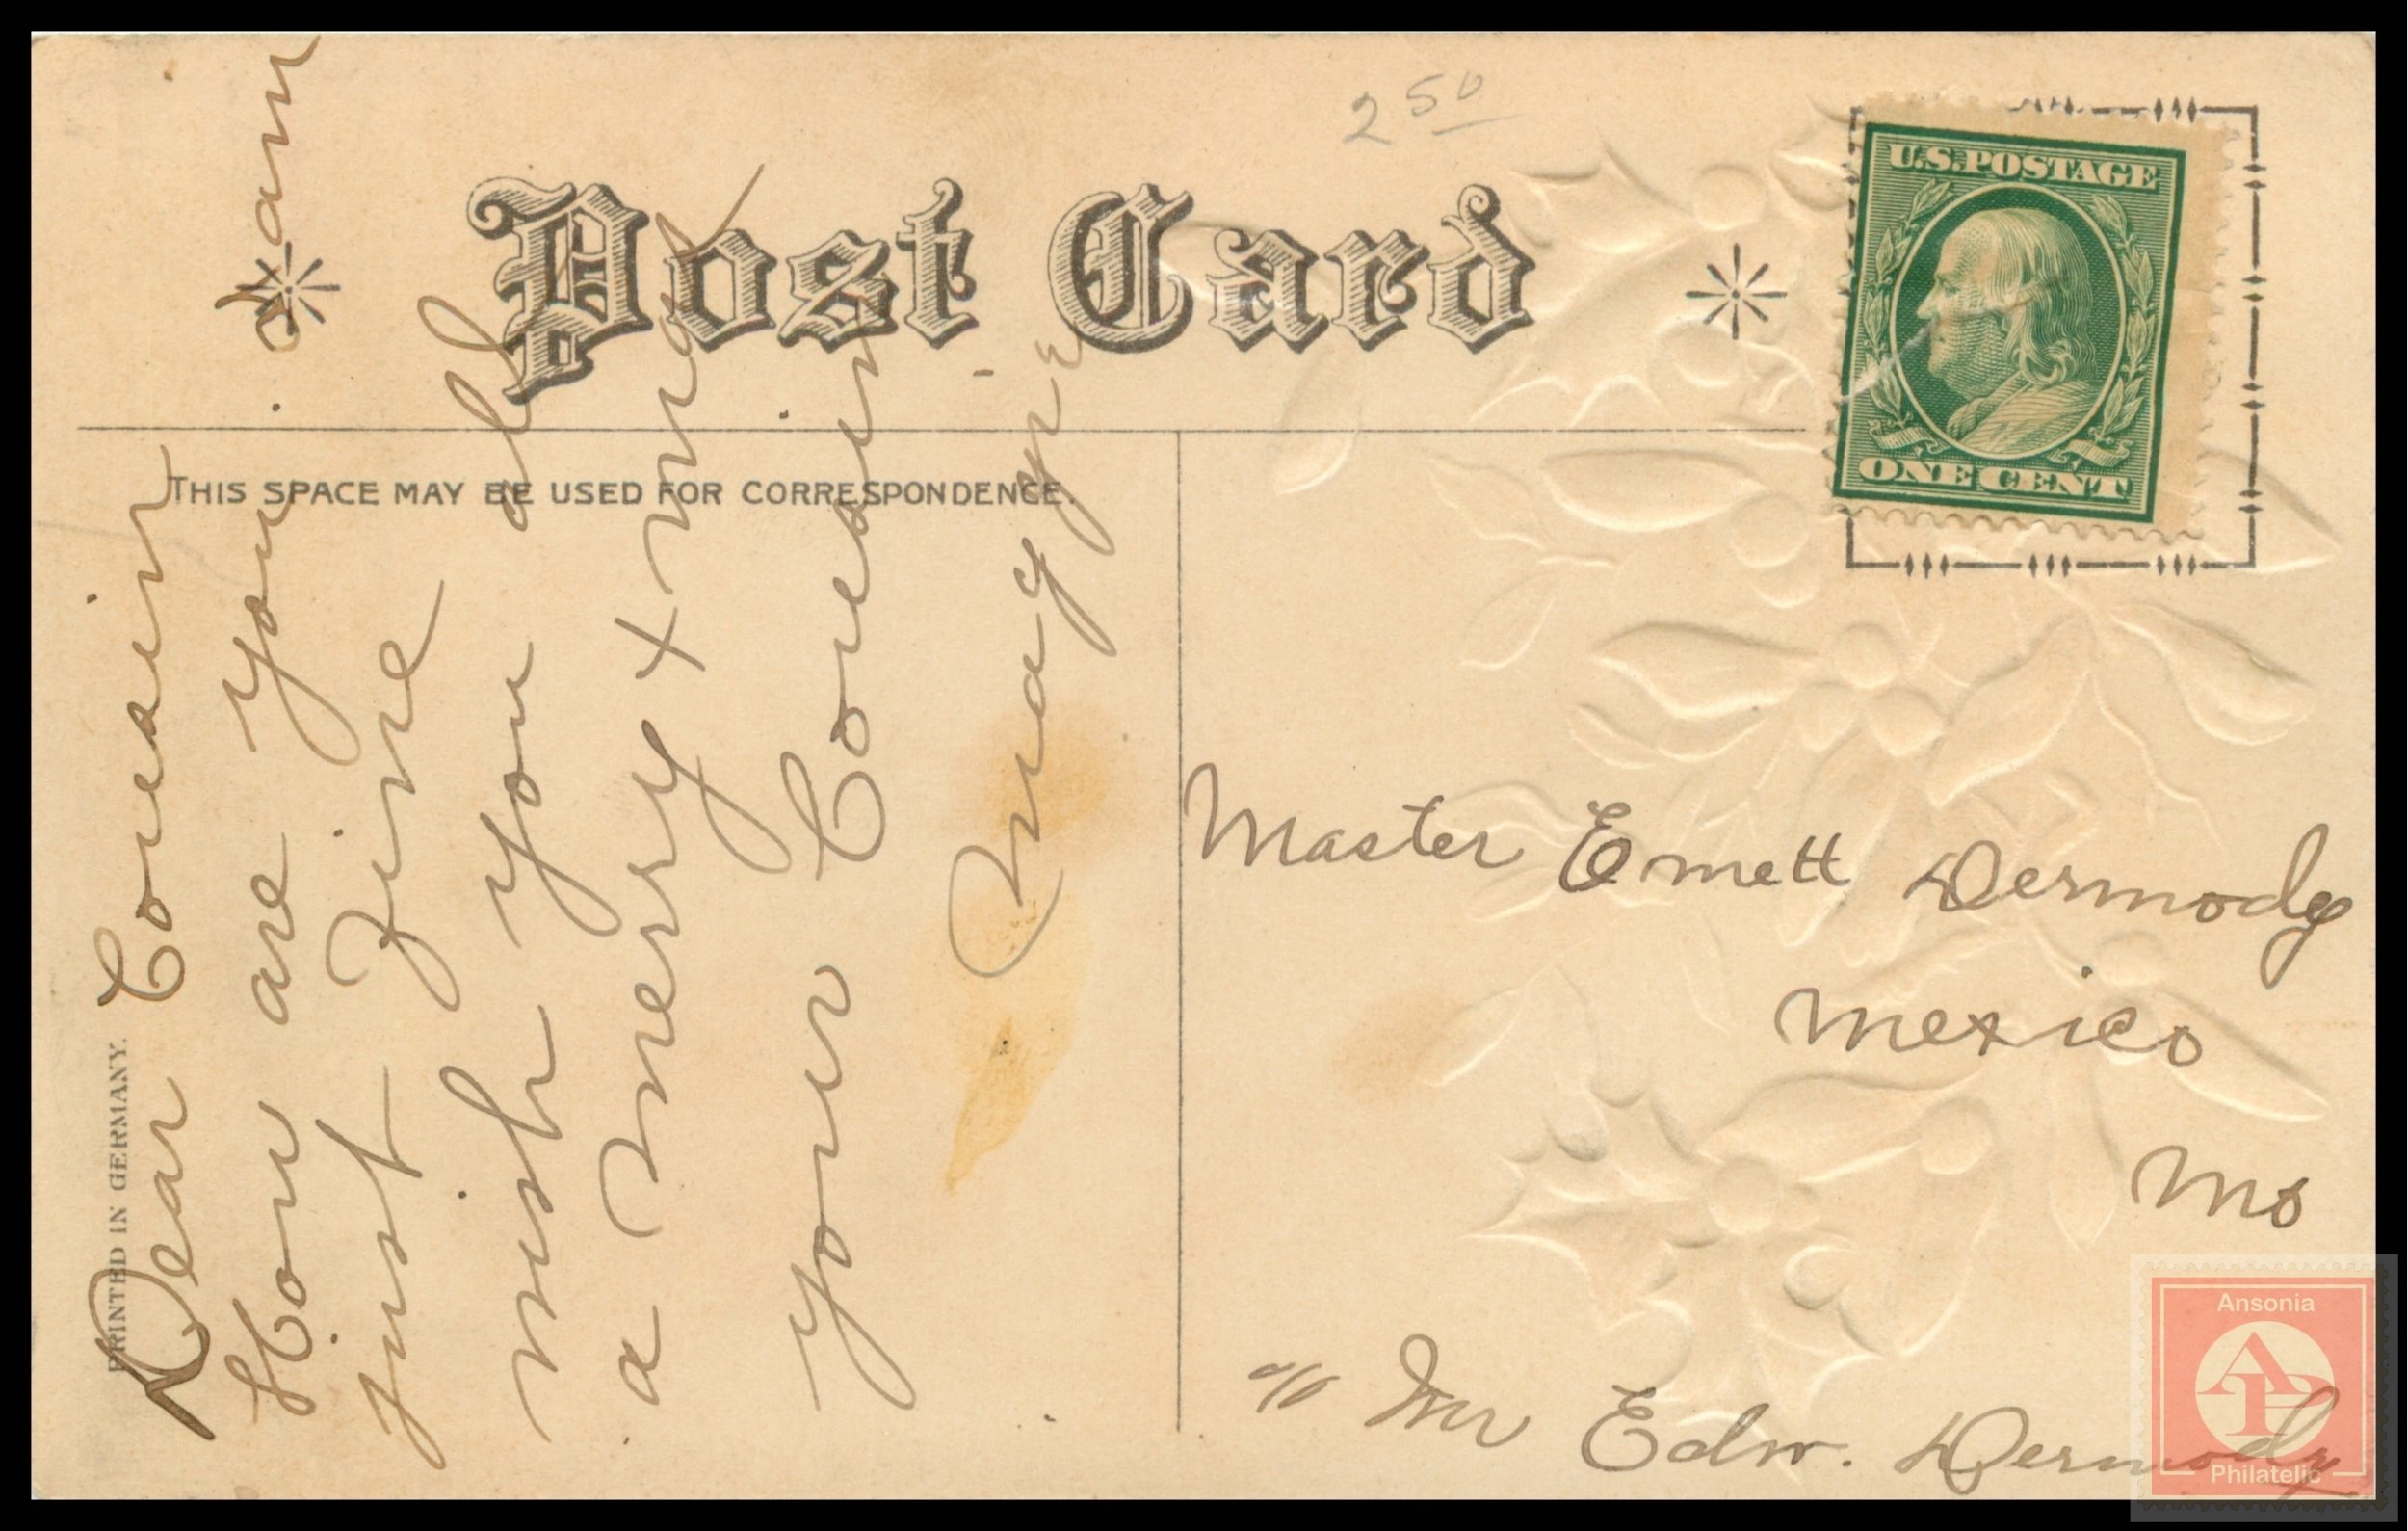 2 50
Post Card
U.S. POSTAGE
ONE CENT
THIS SPACE MAY BE USED FOR CORRESPONDENCE.
PRINTED IN GERMANY.
Dear Cousin
How are you I am
just fine
wish you all
a Merry xmas
your Cousin
Magge
Master Emett Dermody
Mexico
Mo
c/o Mr Edw. Dermody
Ansonia
AP
Philatelic